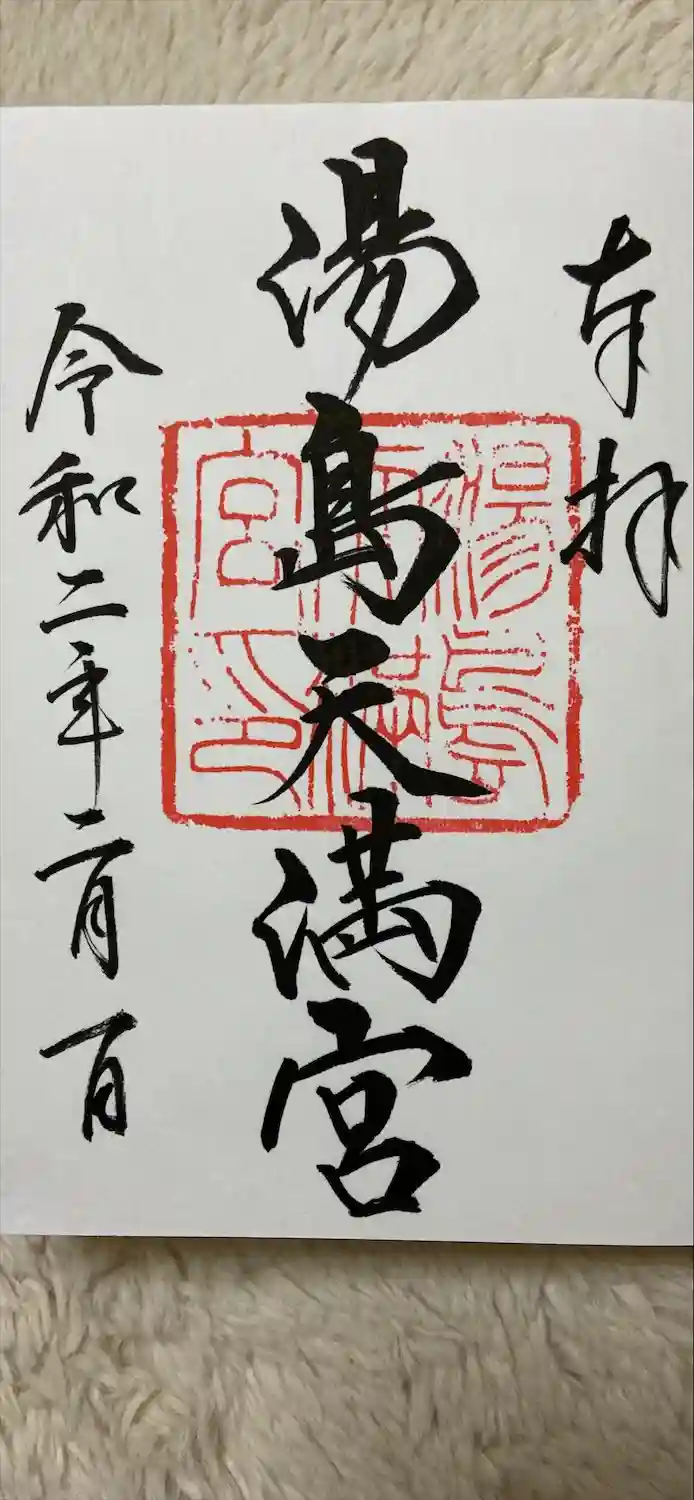 奉拝
湯島天満宮
湯島
天満
宮印
令和二年二月一日